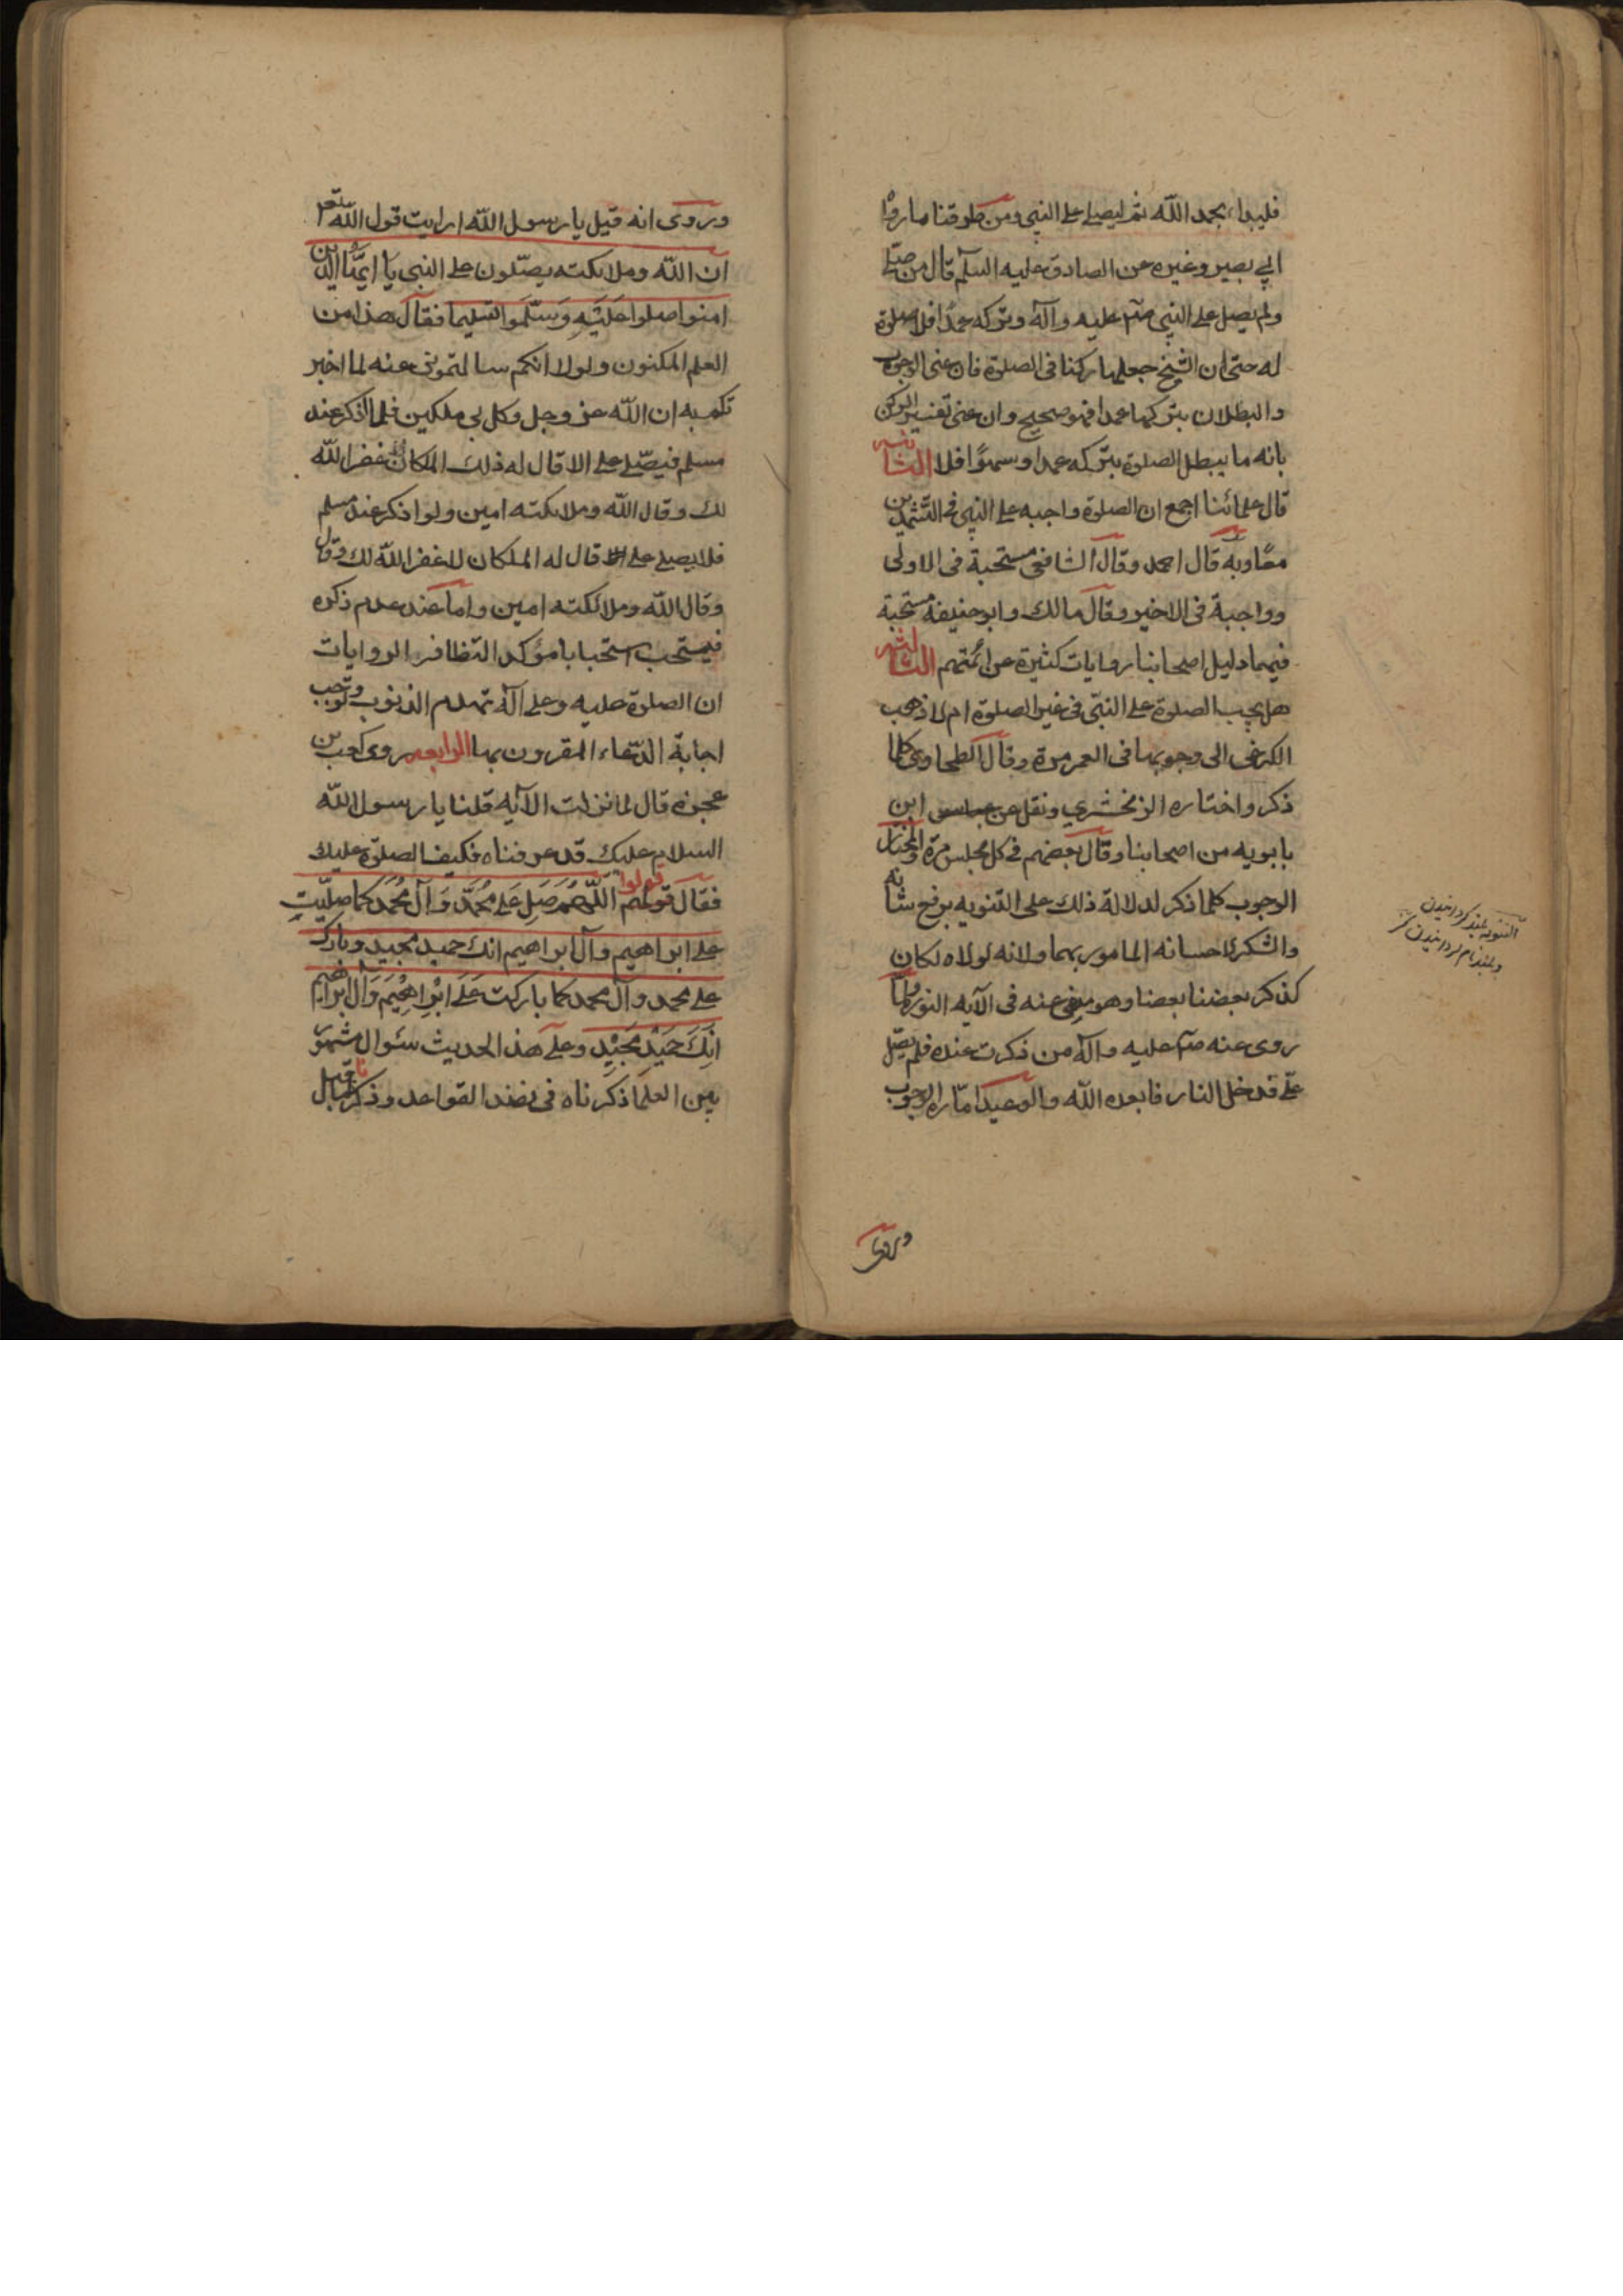 فليبداء بحمد الله ثم ليصلي على النبي ومن طرقنا ما رواه
ابي بصير وغيره عن الصادق عليه السلم قال من صلى
ولم يصل على النبي صلم عليه وآله وتركه عمدًا فلا صلوة
له حتى ان الشيخ جعلها ركنا في الصلوة فان عنى الوجوب
والبطلان بتركها عمدا فهو صحيح وان عنى تفسير الركن
بانه ما يبطل الصلوة بتركه عمدا وسهوًا فلا الثانيه
قال علمائنا اجمع ان الصلوة واجبه على النبي في التشهدين
معًا وبه قال احمد وقال الشافعي مستحبة في الاولى
وواجبة في الاخير وقال مالك وابو حنيفة مستحبة
فيهما دليل اصحابنا روايات كثيرة عن ائمتهم الثالثه
هل يجب الصلوة على النبي في غير الصلوة ام لا ذهب
الكرخي الى وجوبها في العمر مرة وقال الطحاوى كلما
ذكر واختاره الزمخشري ونقل عن ابن
بابويه من اصحابنا وقال بعضهم في كل مجلس مرة والمختار
الوجوب كلما ذكر لدلالة ذلك على التنويه برفع شانه
والشكر لاحسانه المامور بهما ولانه لولاه لكان
كذكر بعضنا بعضا وهو منهى عنه في الآيه النور ولما
روى عنه صلم عليه وآله من ذكرت عنده فلم يصل
على فدخل النار فابعده الله والوعيد امارة الوجوب
وروى
وروى انه قيل يا رسول الله ارايت قول الله تعالى
ان الله وملائكته يصلون على النبي يا ايها الذين
امنوا صلوا عليه وسلموا تسليما فقال هذا من
العلم المكنون ولولا انكم سالتموني عنه لما اخبر
تكم به ان الله عز وجل وكل بي ملكين فلما اذكر عند
مسلم فيصلي على الا قال له ذلك الملكان غفر الله
لك وقال الله وملائكته امين ولو اذكر عند مسلم
فلا يصلي على الا قال له الملكان لا غفر الله لك وقال
وقال الله وملائكته امين واما عند عدم ذكره
فيستحب استحبابا مؤكدا لتظافر الروايات
ان الصلوة عليه وعلى آله تهدم الذنوب وتوجب
اجابة الدعاء المقرون بها الرابعه روى كعب بن
عجزه قال لما نزلت الآيه قلنا يا رسول الله
السلام عليك قد عرفناه فكيف الصلوة عليك
فقال قولهم قولوا اللهم صل على محمد وآل محمد كما صليت
على ابراهيم وآل ابراهيم انك حميد مجيد وبارك
على محمد وآل محمد كما باركت على ابراهيم وآل ابراهيم
انك حميد مجيد وعلى هذا الحديث سئوال مشهور
بين العلما ذكرناه في نضد القواعد وذكرنا ما قيل